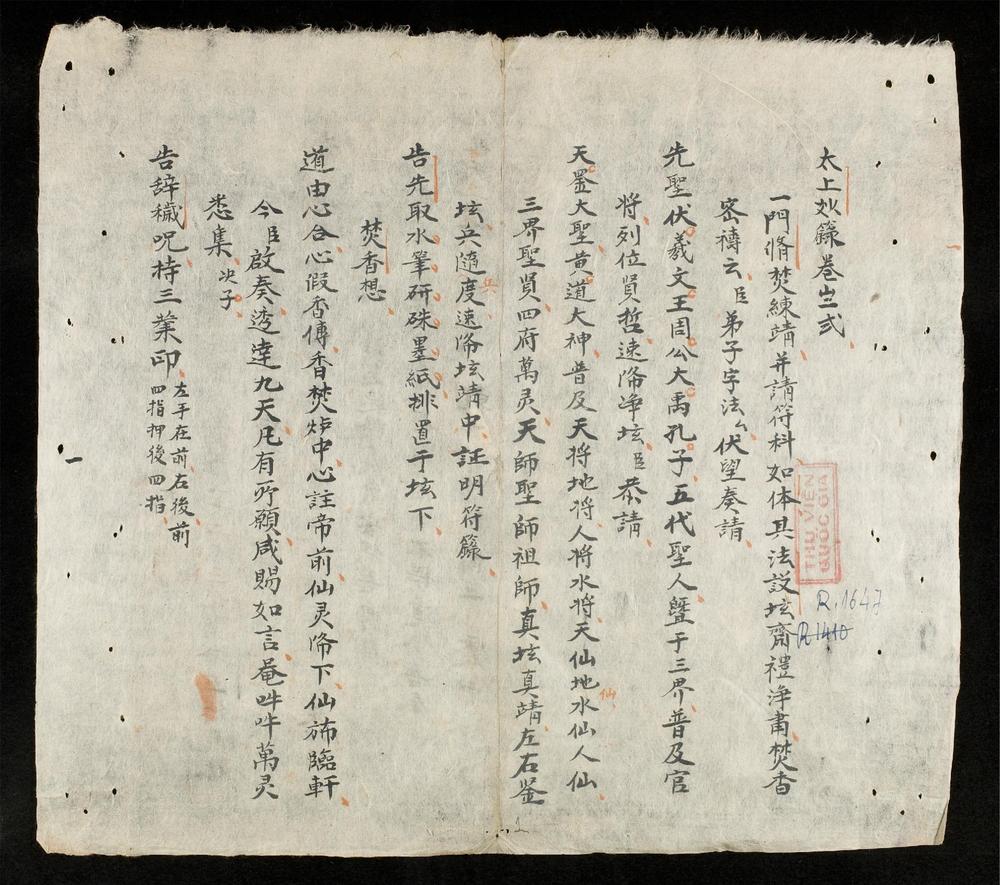 太上妙籙卷㞮弍
一門脩焚練靖并請符科如体具法設坛齋禮淨肅焚香
密禱云臣弟子字法厶伏望奏請
先聖伏羲文王周公大禹孔子五代聖人曁于三界普及官
将列位賢哲速降净坛臣恭請
天罡大聖黄道大神普及天将地将人将水将天仙地水仙人仙
仙
三界聖賢四府萬灵天師聖師祖師真坛真靖左右鉴
坛兵隨度速降坛靖中証明符籙
兵
告先取水筆研硃墨紙排置于坛下
焚香想
道由心合心假香傳香焚炉中心註帝前仙灵降下仙斾臨軒
今臣啟奏透達九天凡有所願咸賜如言菴吽吽萬灵
悉集决子
告辞穢呪持三業印左手在前右後前
四指押後四指
THƯ VIỆN
QUỐC GIA
R.1647
R1410